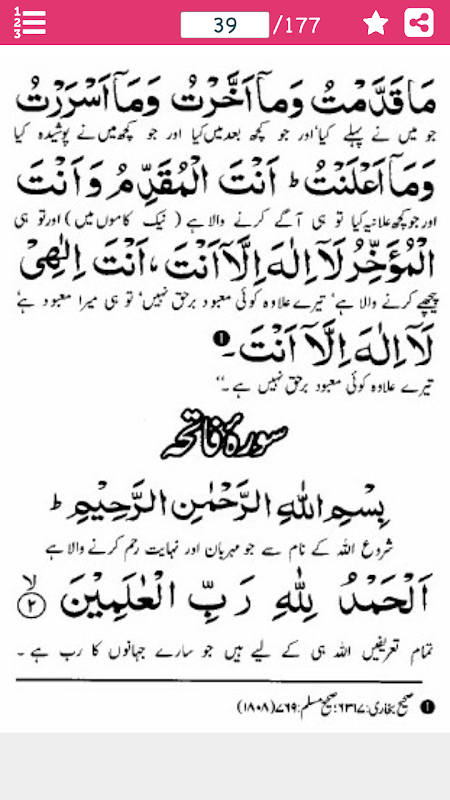 1 2 3
39 /177
مَا قَدَّمْتُ وَمَآ اَخَّرْتُ وَمَآ اَسْرَرْتُ
جو میں نے پہلے کیا‘ اور جو کچھ بعد میں کیا اور جو کچھ میں نے پوشیدہ کیا
وَمَآ اَعْلَنْتُ ؕ اَنْتَ الْمُقَدِّمُ وَاَنْتَ
اور جو کچھ علانیہ کیا تو ہی آگے کرنے والا ہے (نیک کاموں میں) اور تو ہی
الْمُؤَخِّرُ لَآ اِلٰهَ اِلَّآ اَنْتَ ، اَنْتَ اِلٰهِیْ
پیچھے کرنے والا ہے‘ تیرے علاوہ کوئی معبود برحق نہیں‘ تو ہی میرا معبود ہے‘
لَآ اِلٰهَ اِلَّآ اَنْتَ ۔ ❶
تیرے علاوہ کوئی معبود برحق نہیں ہے ۔‘‘
سورۂ فاتحہ
بِسْمِ اللّٰهِ الرَّحْمٰنِ الرَّحِیْمِ ؕ
شروع اللہ کے نام سے جو مہربان اور نہایت رحم کرنے والا ہے
اَلْحَمْدُ لِلّٰهِ رَبِّ الْعٰلَمِیْنَ ۙ ۲
تمام تعریفیں اللہ ہی کے لیے ہیں جو سارے جہانوں کا رب ہے ۔
❶ صحیح بخاری: ۶۳۱۷؛ صحیح مسلم: ۷۶۹ (۱۸۰۸)